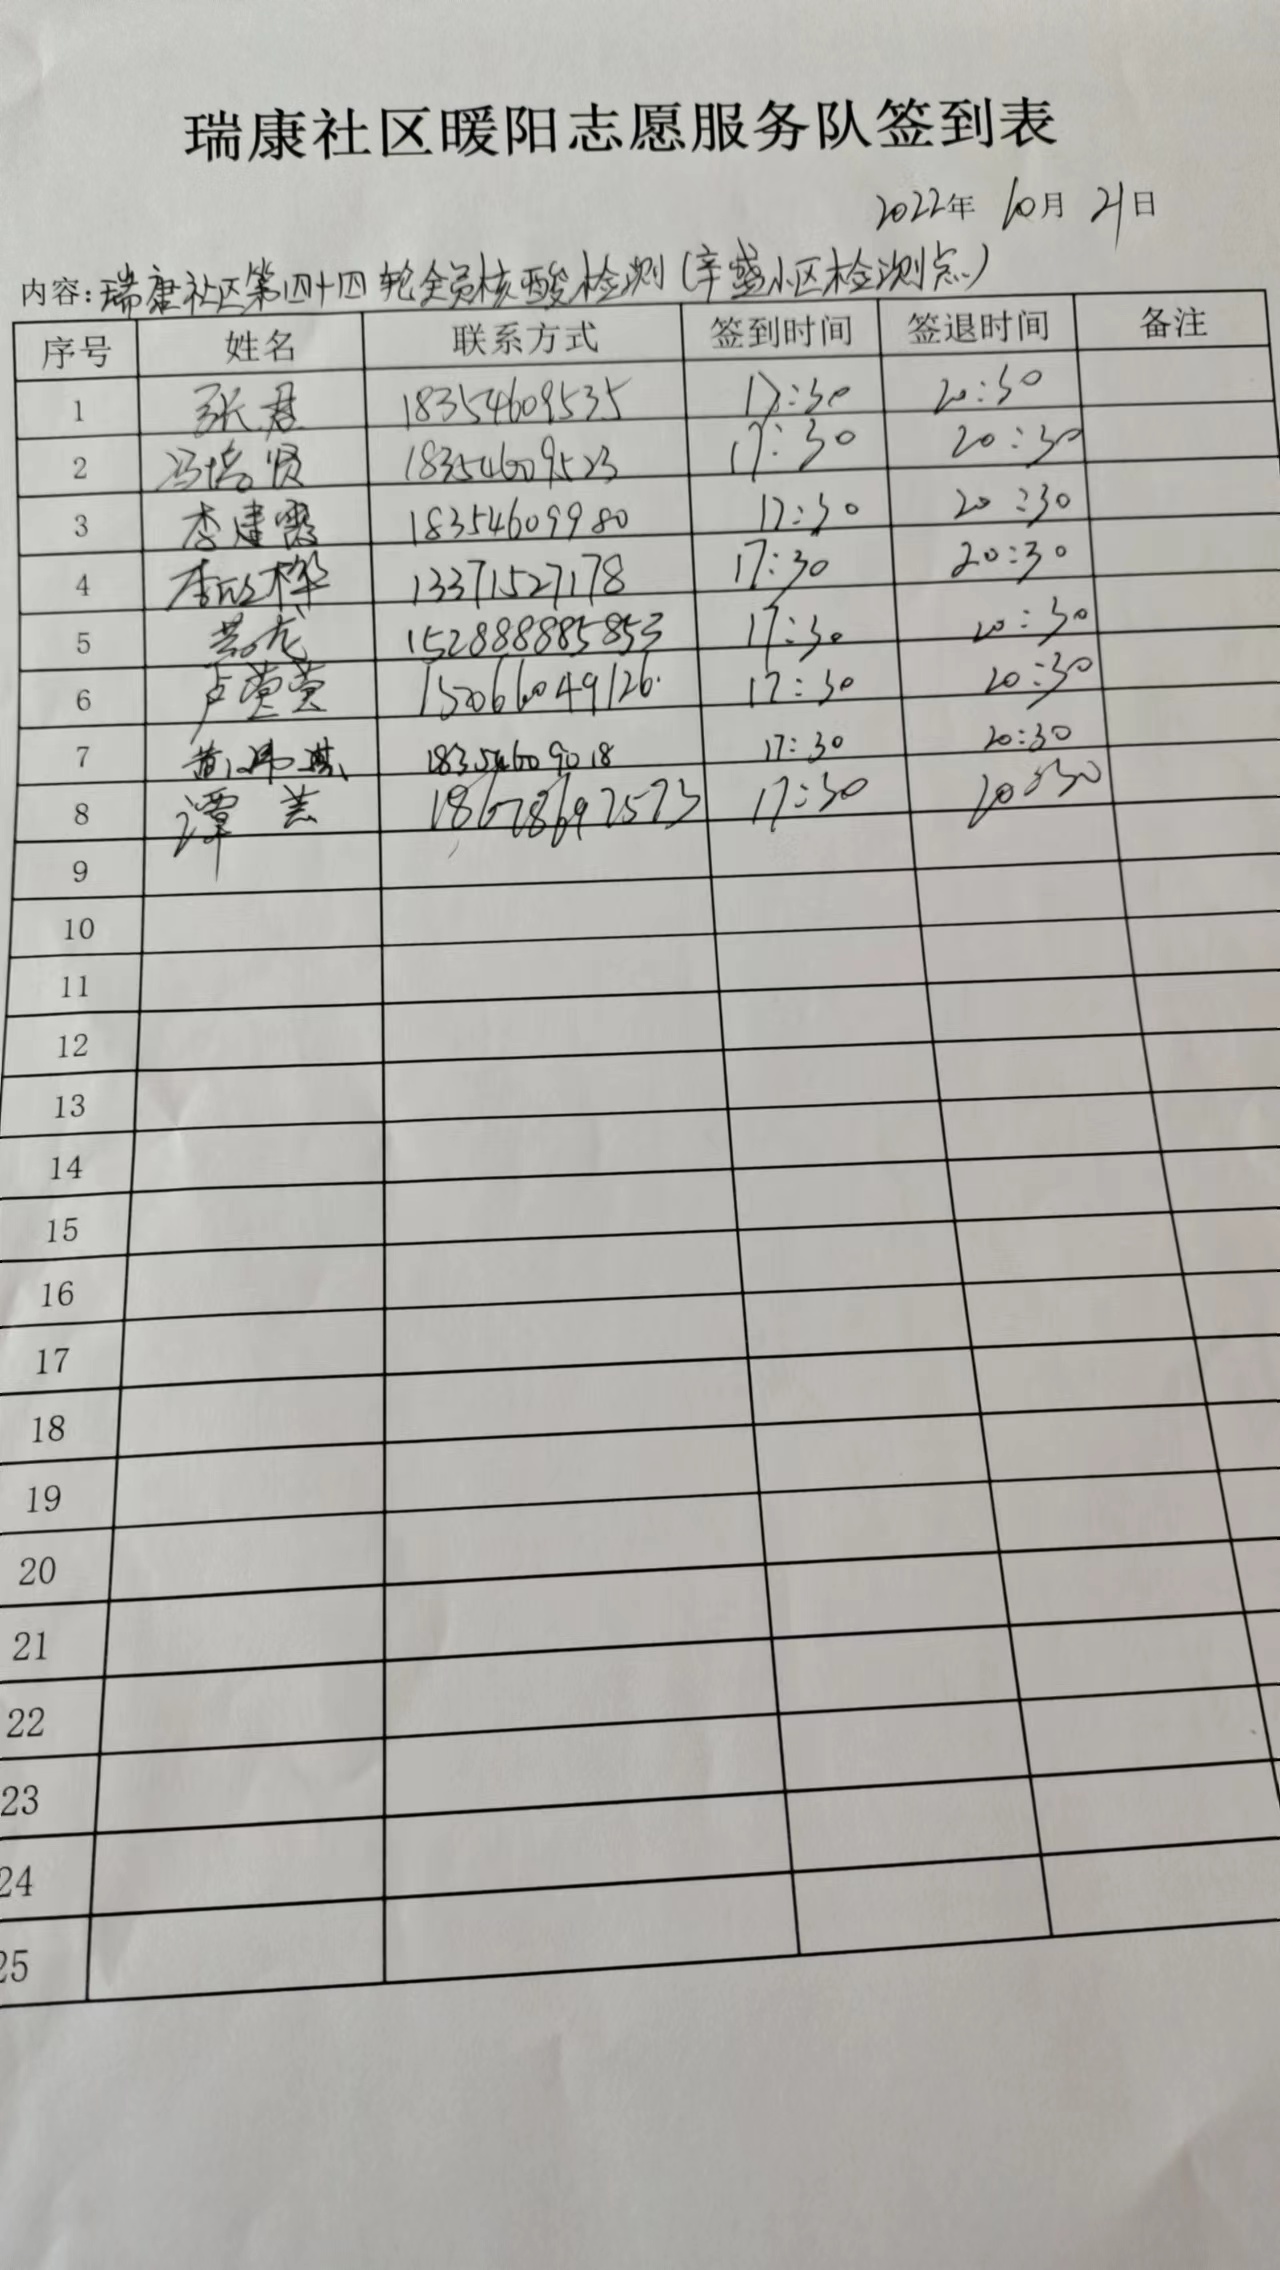 瑞康社区暖阳志愿服务队签到表
2022年 10月 21日
内容:瑞康社区第四十四轮全员核酸检测(辛盛小区检测点)
序号 姓名 联系方式 签到时间 签退时间 备注
1 张君 18354609535 17:30 20:30
2 冯培贤 18354609523 17:30 20:30
3 李建霞 18354609980 17:30 20:30
4 李欣桦 13371527178 17:30 20:30
5 152888885853 17:30 20:30
6 卢萱萱 15066049126 17:30 20:30
7 黄 18354609018 17:30 20:30
8 谭 18678692573 17:30 20:30
9
10
11
12
13
14
15
16
17
18
19
20
21
22
23
24
25